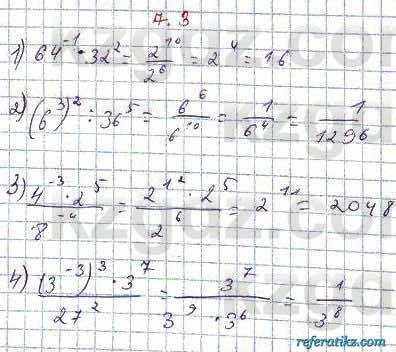 7.3
1) 64⁻¹ · 32² = 2¹⁰/2⁶ = 2⁴ = 16
2) (6³)² : 36⁵ = 6⁶/6¹⁰ = 1/6⁴ = 1/1296
3) 4⁻³ · 2⁵/8⁻⁴ = 2¹² · 2⁵/2⁶ = 2¹¹ = 2048
4) (3⁻³)³ · 3⁷/27² = 3⁷/3⁹ · 3⁶ = 1/3⁸
referatikz.com